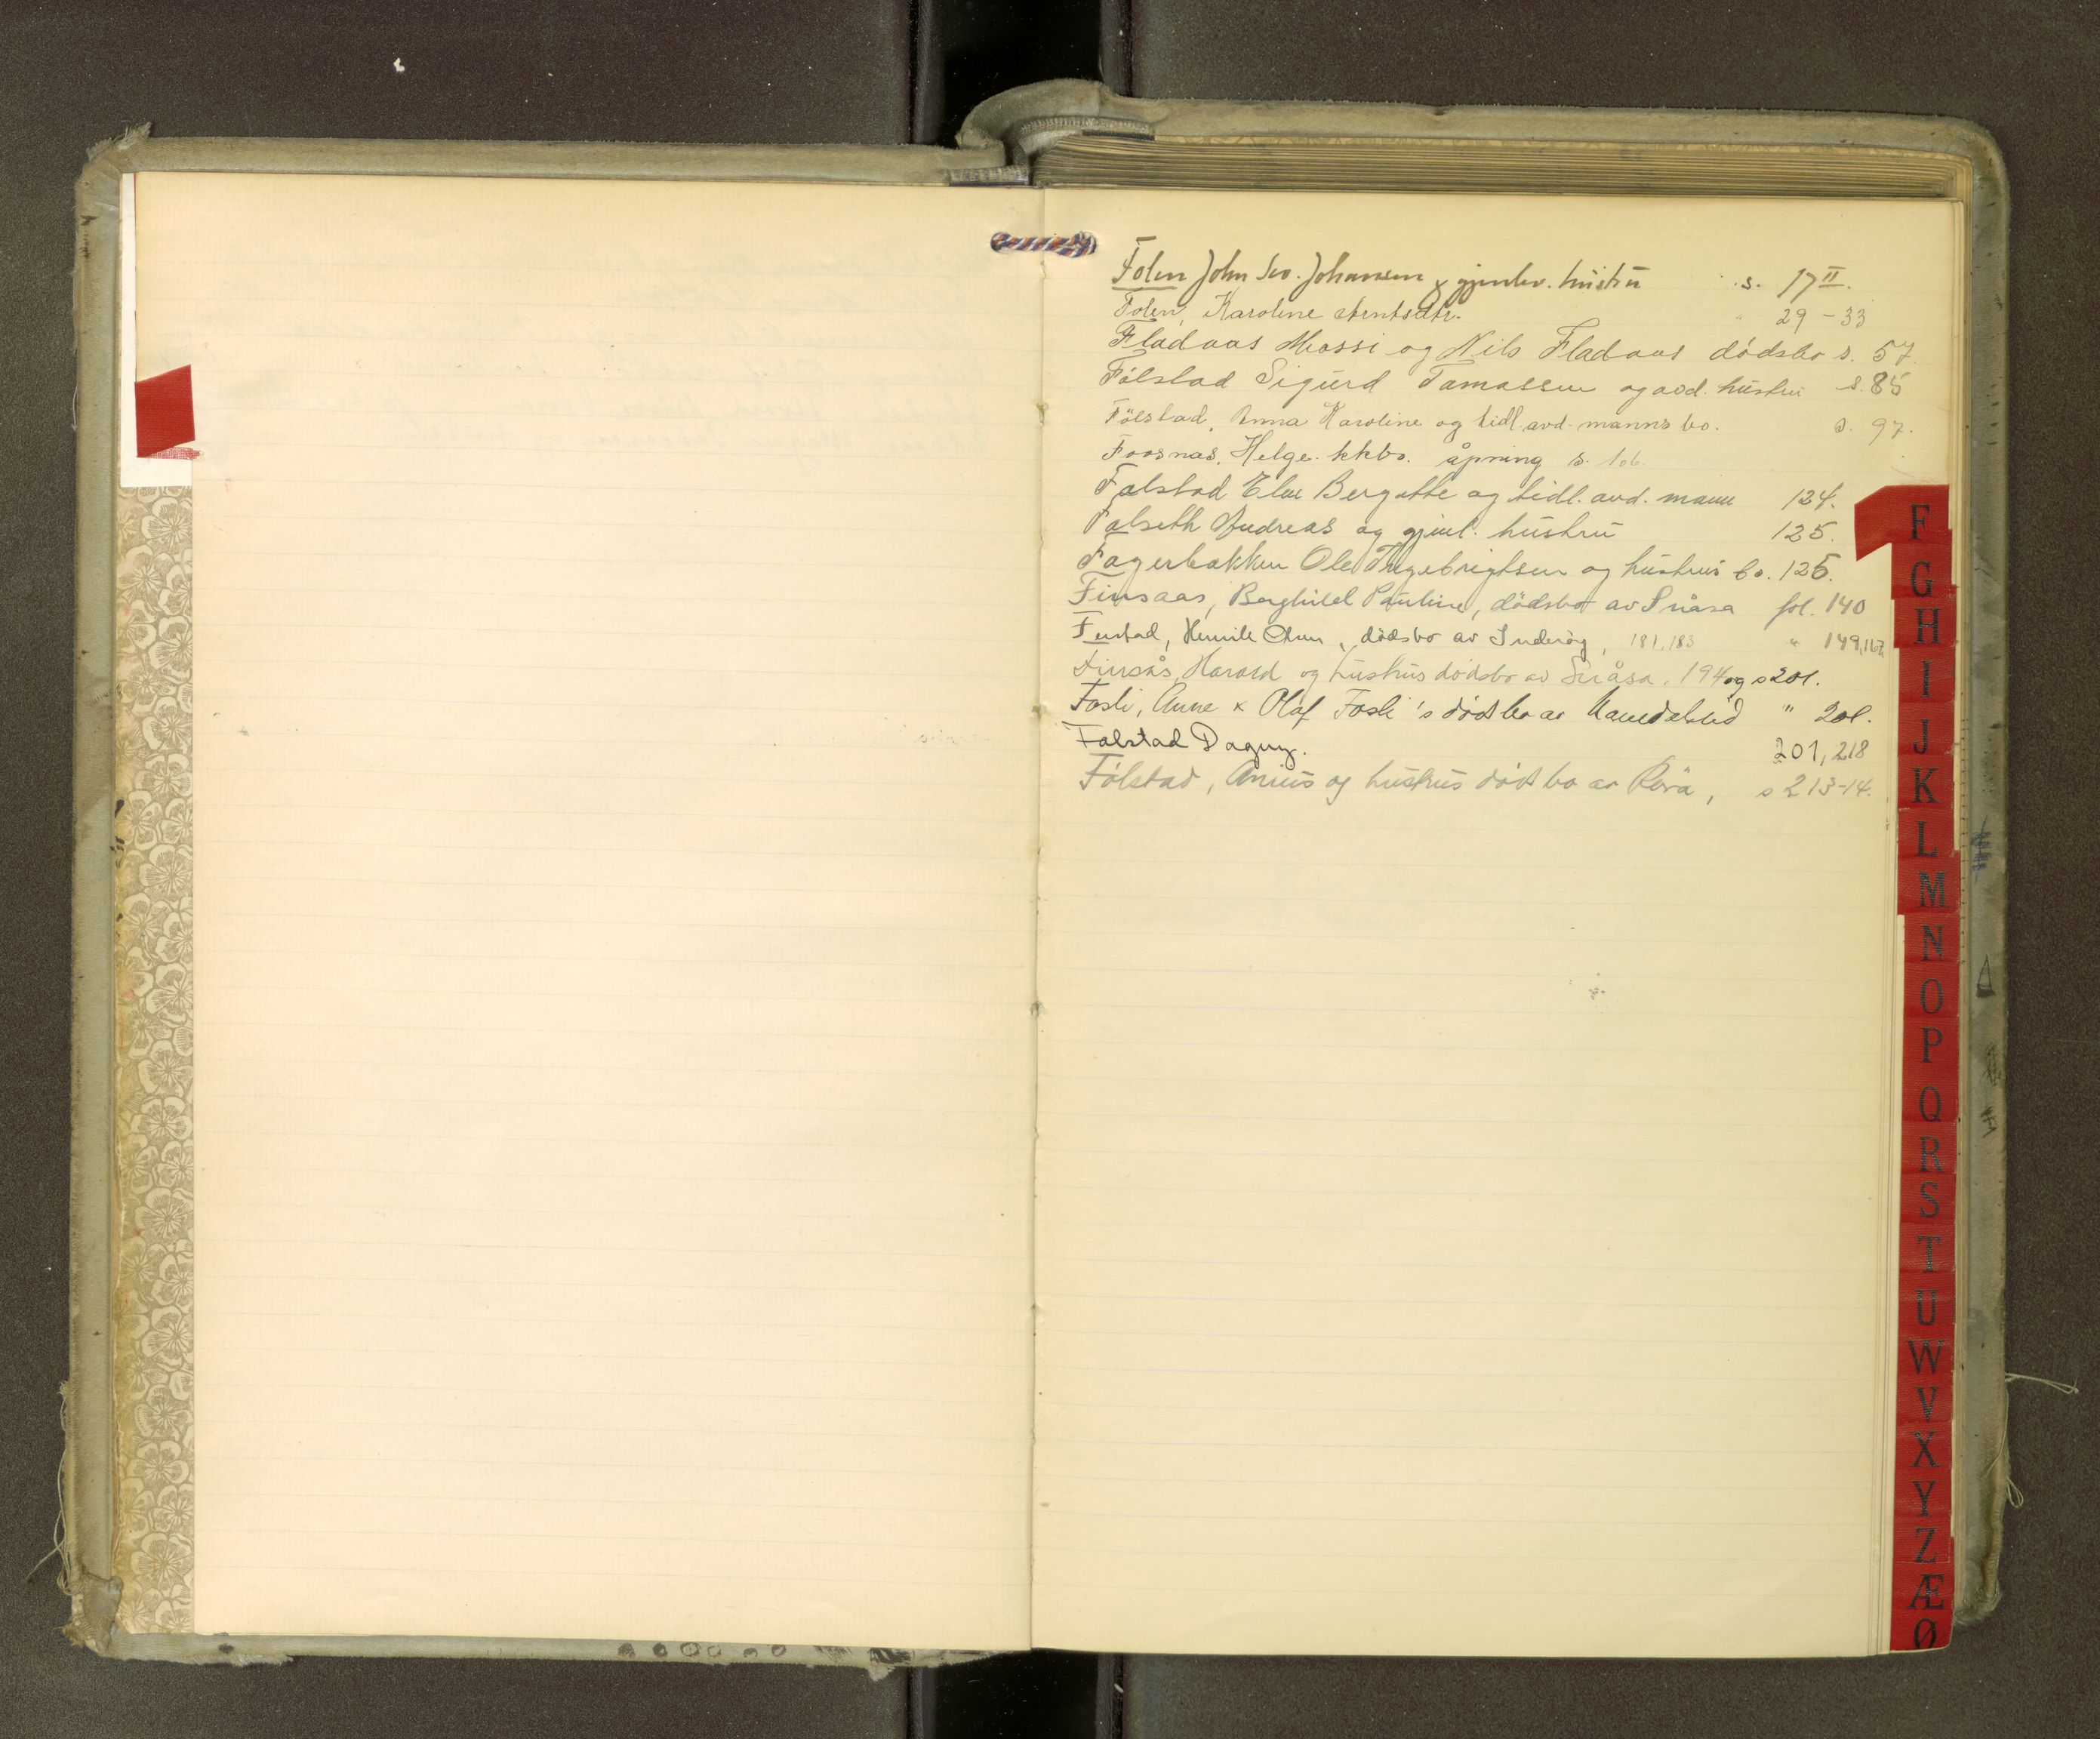 Folen John Sev. Johansen & gjenlev. hustru s. 17 II.
Folen, Karoline Arntsdtr. " 29-33
Fladaas Massi og Nils Fladaas dödsbo s. 57.
Fölstad Sigurd Tomassen og avd. hustru s. 85
Fölstad, Anna Karoline og tidl. avd. manns bo. s. 97.
Foosnas, Helge. kkbo. åpning s. 106
Falstad Elen Bergitte og tidl. avd. mann 124.
Falseth Andreas og gjenl. hustru 125.
Fagerbakken Ole Ingebrigtsen og hustrus bo. 125.
Finsaas, Berghild Pauline, dödsbo av Snåsa fol. 140
Henrik Chr. , dödsbo av Inderöy, 181, 183 " 149,
Finsås, Harald og hustrus dödsbo av Snåsa. 194 og s 201.
Fosli, Anne & Olaf Fosli's dödsbo av Namdalseid " 201.
Falstad Dagny. 201, 218
Fölstad, Anius og hustrus dödsbo av Röra, s 213-14.
F
G
H
I
J
K
L
M
N
O
P
Q
R
S
T
U
W
V
X
Y
Z
Æ
Ø